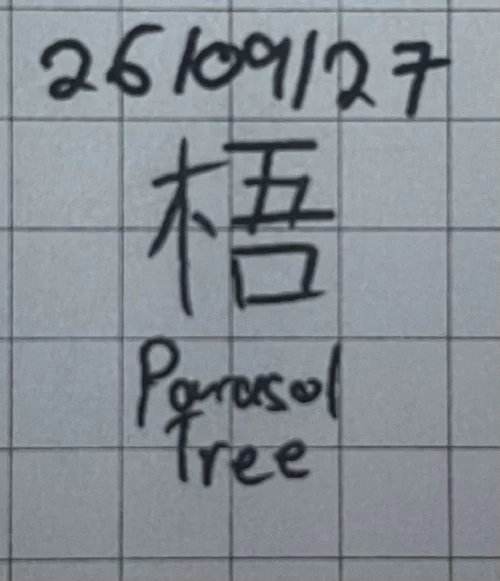 26/09/27
梧
Parasol
Tree